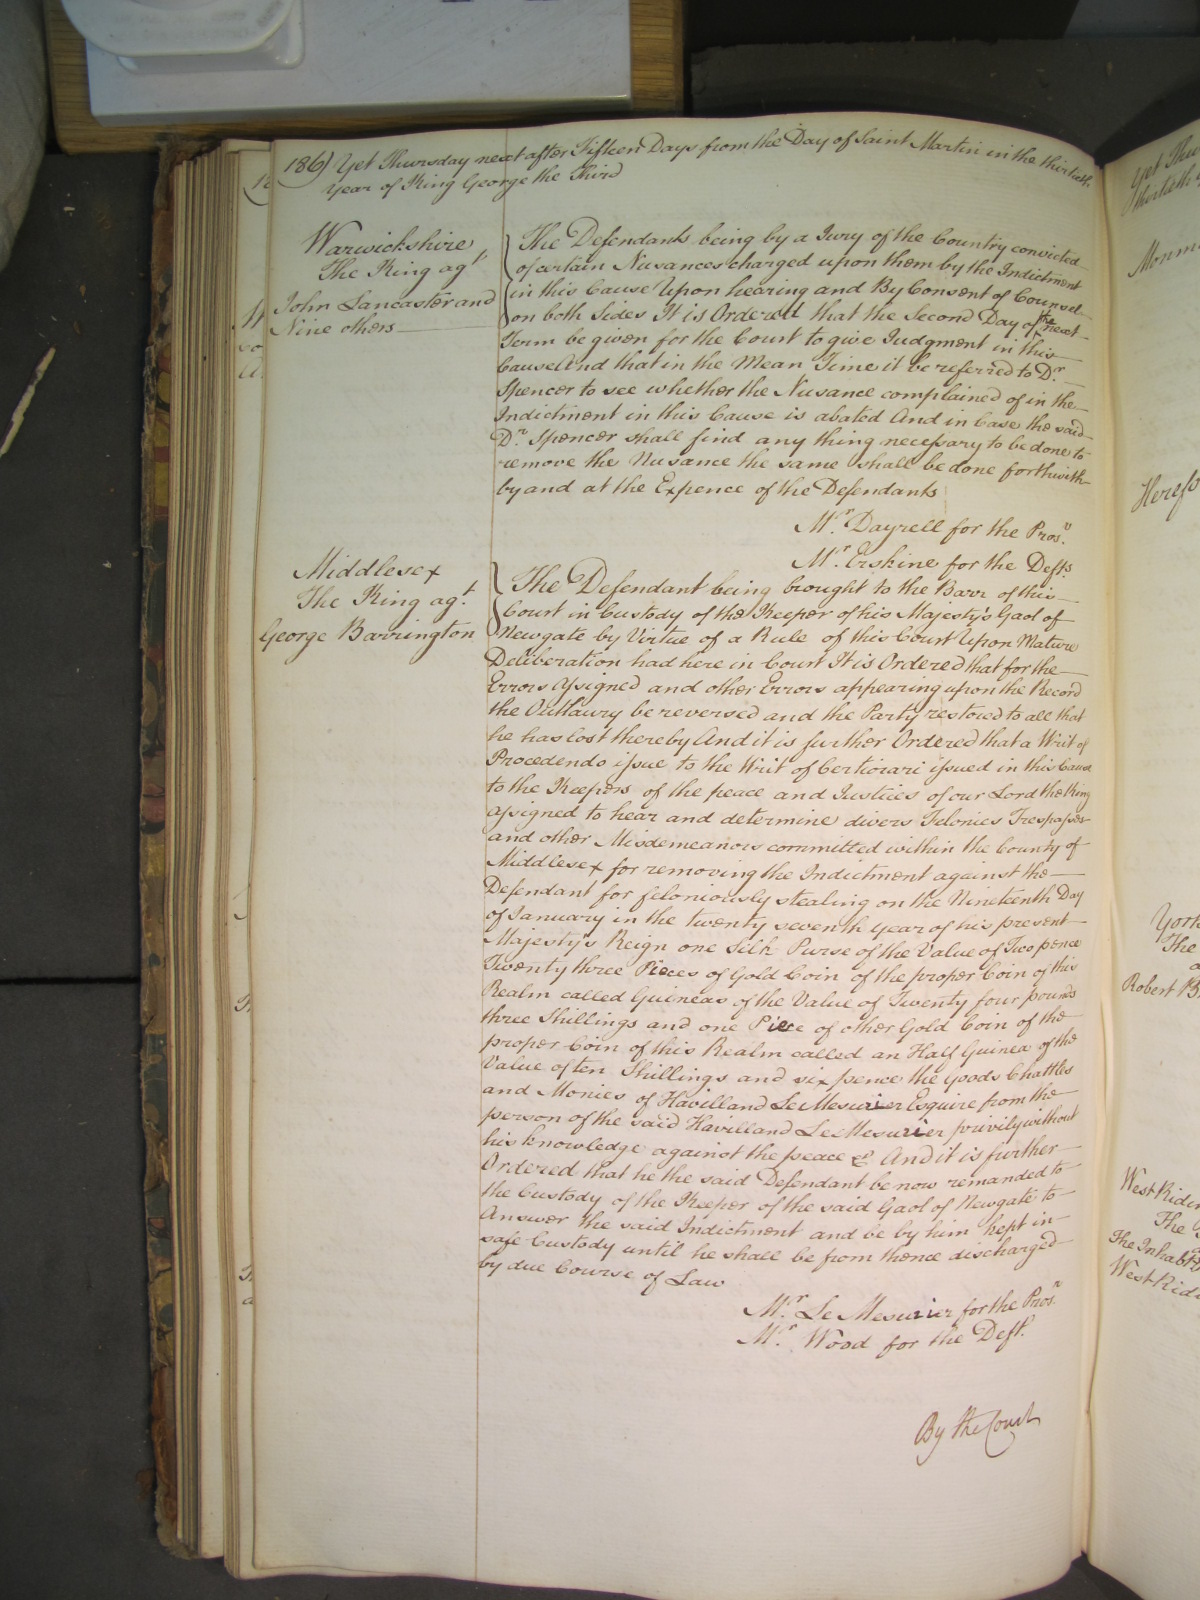 186) Yet Thursday next after Fifteen Days from the Day of Saint Martin in the thirtieth
Year of King George the Third
Warwickshire
The King agt.
John Lancaster and
Nine others
The Defendants being by a Jury of the Country convicted
of certain Nusances charged upon them by the Indictment
in this Cause Upon hearing and By Consent of Counsel
on both Sides It is Ordered that the Second Day of the next
Term be given for the Court to give Judgment in this
Cause And that in the Mean Time it be referred to Dr.
Spencer to see whether the Nusance complained of in the
Indictment in this Cause is abated And in Case the said
Dr. Spencer shall find any thing necessary to be done to
remove the Nusance the same shall be done forthwith
by and at the Expence of the Defendants
Mr. Dayrell for the Prosr.
Mr. Erskine for the Defts.
Middlesex
The King agt.
George Barrington
The Defendant being brought to the Barr of this
Court in Custody of the Keeper of his Majesty's Gaol of
Newgate by Virtue of a Rule of this Court Upon Mature
Deliberation had here in Court It is Ordered that for the
Errors assigned and other Errors appearing upon the Record
the Outlawry be reversed and the Party restored to all that
he has lost thereby And it is further Ordered that a Writ of
Procedendo issue to the Writ of Certiorari issued in this Cause
to the Keepers of the peace and Justices of our Lord the King
assigned to hear and determine divers Felonies Trespasses
and other Misdemeanors committed within the County of
Middlesex for removing the Indictment against the
Defendant for feloniously stealing on the Nineteenth Day
of January in the twenty seventh year of his present
Majesty's Reign one Silk Purse of the Value of Two pence
Twenty three Pieces of Gold Coin of the proper Coin of this
Realm called Guineas of the Value of Twenty four pounds
three Shillings and one Piece of other Gold Coin of the
proper Coin of this Realm called an Half Guinea of the
Value of ten Shillings and six pence the goods Chattles
and Monies of Havilland Le Mesurier Esquire from the
person of the said Havilland Le Mesurier privily without
his knowledge against the peace &c And it is further
Ordered that he the said Defendant be now remanded to
the Custody of the Keeper of the said Gaol of Newgate to
Answer the said Indictment and be by him kept in
safe Custody until he shall be from thence discharged
by due Course of Law
Mr. Le Mesurier for the Prosr.
Mr. Wood for the Deft.
By the Court
Yet Thu
thirtieth
Monm
Heref
York
The
Robert B
West Ridi
The
The Inhabt
West Rid